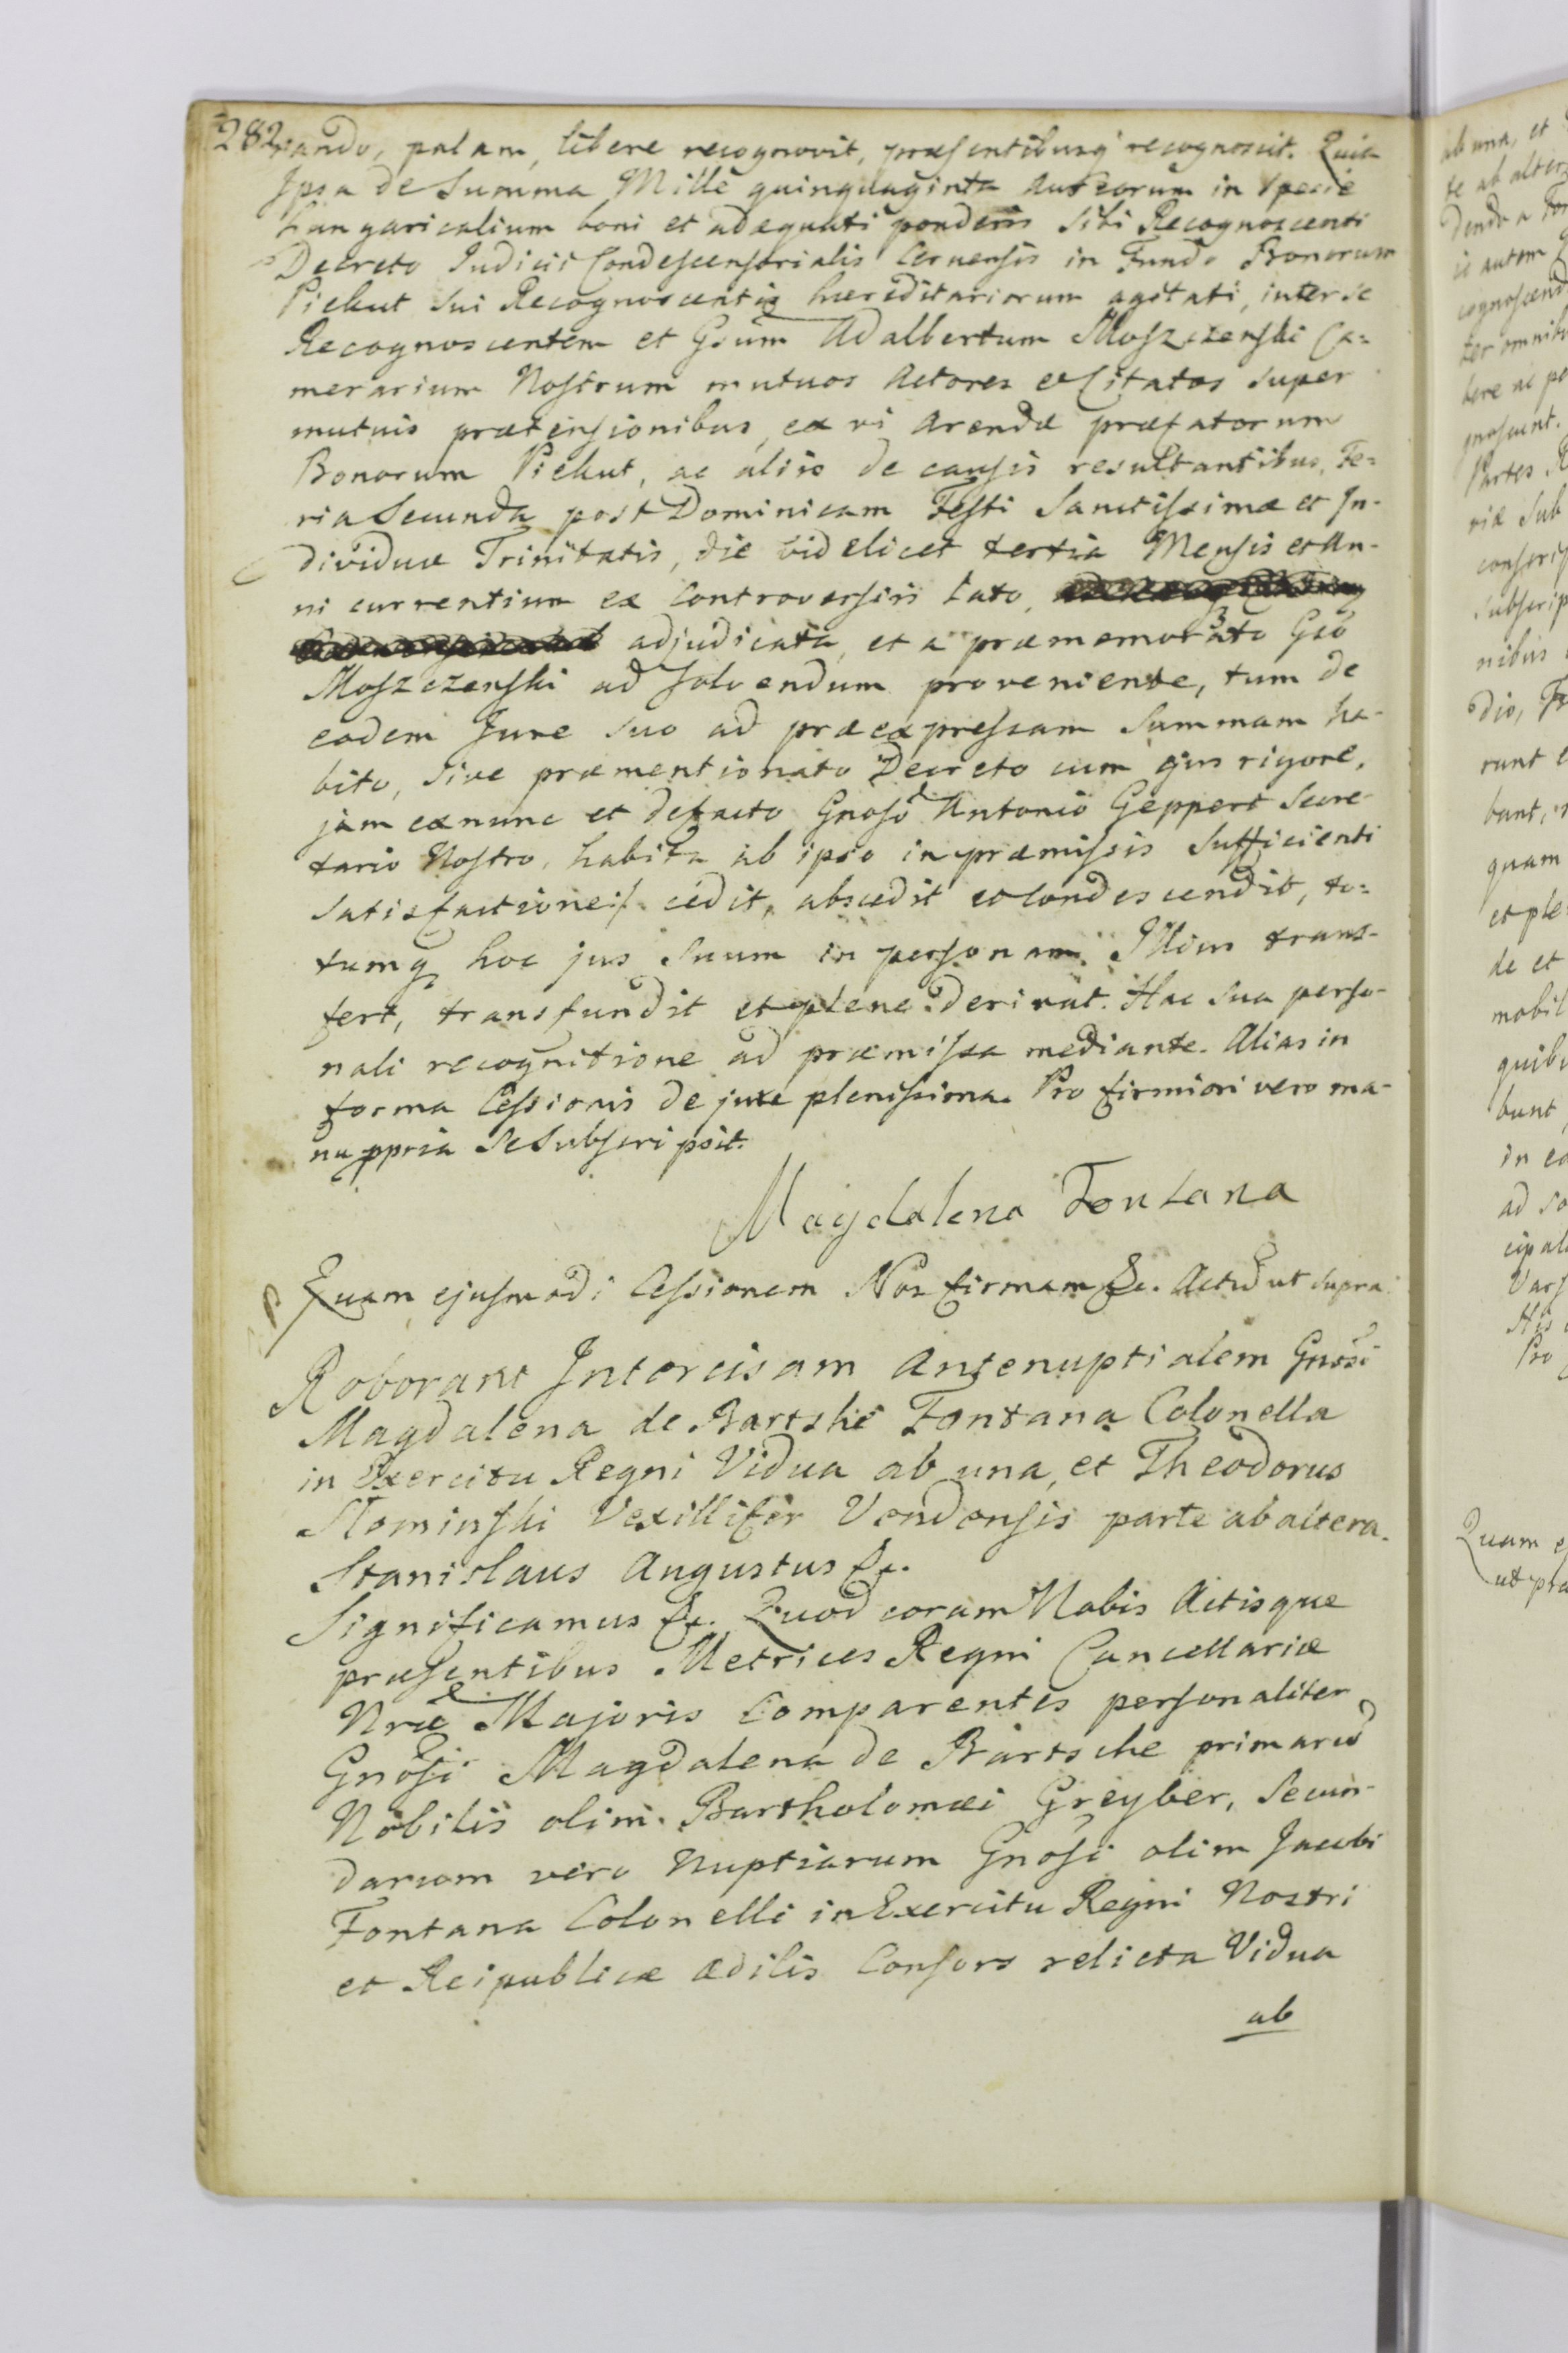 282
nando, palam, libere recognovit, præsentibusq recognoscit. Quia
Ipsa de Summa Mille quinquaginta Aureorum in Specie
Hungaricalium boni et adæquati ponderis Sibi Recognoscenti
Decreto Judicii Condescensorialis Cernensis in Fundo Bonorum
Piekut Sui Recognoscentis hæreditariorum agitati, inter Se
Recognoscentem et Gsum Adalbertum Moszczenski Ca=
merarium Nostrum mutuos Actores et Citatos Super
mutuis prætensionibus, ex vi Arendæ præfatorum
Bonorum Piekut, ac aliis de causis resultantibus, Fe=
ria Secunda post Dominicam Festi Sanctissimæ et In-
dividuæ Trinitatis, die videlicet tertia Mensis et An-
ni currentium ex Controversiis Lato,
adjudicata, et a præmemorato Gso
Moszczenski ad Solvendum proveniente, tum de
eodem Jure Suo ad præexpressam Summam ha-
bito, Sive præmentionato Decreto cum ejus rigore,
jam exnunc et defacto Gnoso Antonio Geppert Secre-
tario Nostro, habita ab ipso in præmissis Sufficienti
Satisfactione/ cedit, abscedit et Condescendit, to=
tumq hoc jus Suum in personam Illius trans-
fert, transfundit et plene derivat. Hac Sua perso-
nali recognitione ad præmissa mediante. Alias in
forma Cessionis de jure plenissima. Pro firmiori vero ma-
nu ppria Se Subscripsit.
Magdalena Fontana
Quam ejusmodi Cessionem Nos firmam &c. Actũ ut supra
Roborant Intercisam Antenuptialem Gnosi
Magdalena de Bartshe Fontana Colonella
in Exercitu Regni Vidua ab una, et Theodorus
Slominski Vexillifer Vendensis parte ab altera.
Stanislaus Augustus &c.
Significamus &c. Quod coram Nobis Actisque
præsentibus Metrices Regni Cancellariæ
Nræ Majoris Comparentes personaliter
Gnosi Magdalena de Bartsche primarũ
Nobilis olim Bartholomæi Greyber, Secun-
dariom vero Nuptiarum Gnosi olim Jacobi
Fontana Colonelli in Exercitu Regni Nostri
et Reipublicæ Ædilis Consors relicta Vidua
ab